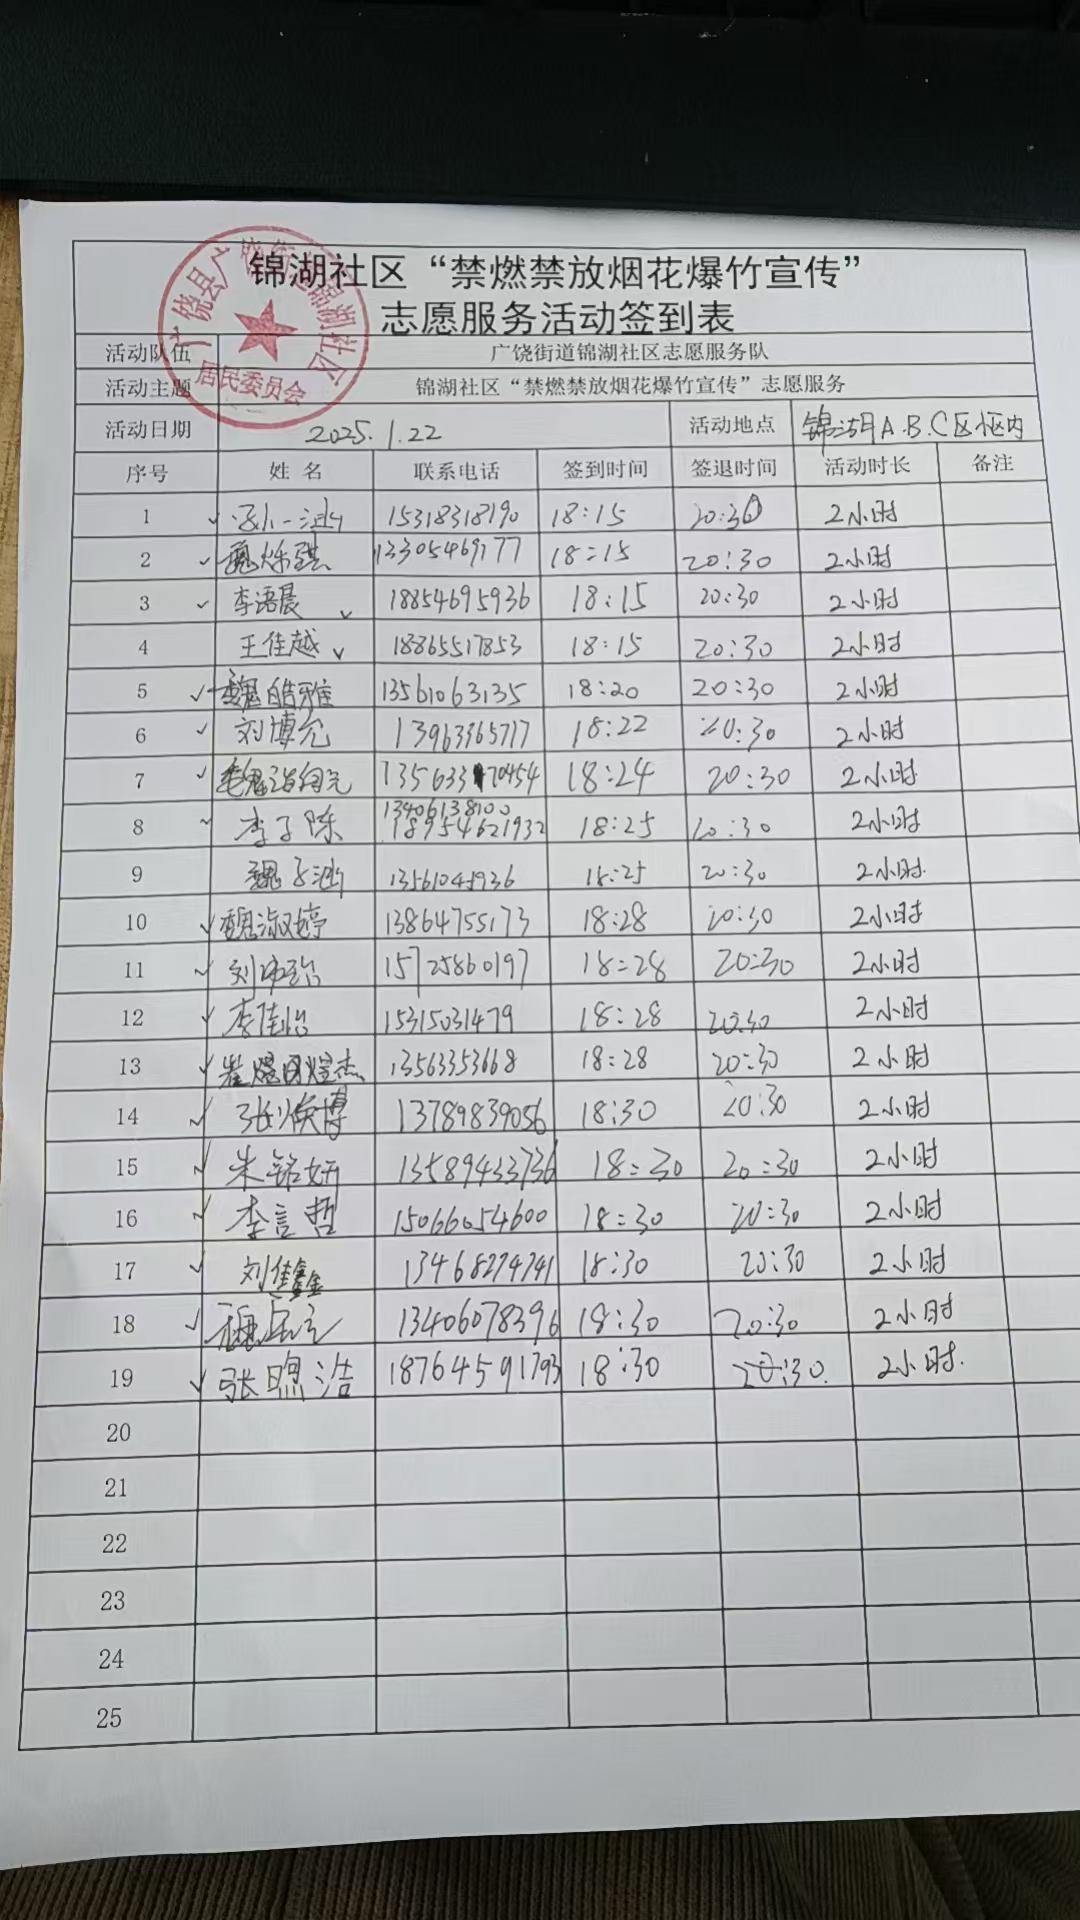 锦湖社区“禁燃禁放烟花爆竹宣传”
志愿服务活动签到表
广饶县广饶街道锦湖社区
居民委员会
活动队伍 广饶街道锦湖社区志愿服务队
活动主题 锦湖社区“禁燃禁放烟花爆竹宣传”志愿服务
活动日期 2025.1.22 活动地点 锦湖A.B.C区区内
序号 姓名 联系电话 签到时间 签退时间 活动时长 备注
1 一涵 15318318190 18:15 20:30 2小时
2 魏烁琪 13305469177 18:15 20:30 2小时
3 李语晨 18854695936 18:15 20:30 2小时
4 王佳越 18865517853 18:15 20:30 2小时
5 魏皓雅 13561063135 18:20 20:30 2小时
6 刘博允 13963365717 18:22 20:30 2小时
7 18:24 20:30 2小时
8 李子陈 13406138100 18954621932 18:25 20:30 2小时
9 魏子涵 13561045936 18:25 20:30 2小时.
10 魏淑婷 13864755173 18:28 20:30 2小时
11 刘 15725860197 18:28 20:30 2小时
12 李佳怡 15315031479 18:28 20:30 2小时
13 崔 煊杰 13563353668 18:28 20:30 2小时
14 张焕博 13789839056 18:30 20:30 2小时
15 朱铭妍 13589433736 18:30 20:30 2小时
16 李言哲 15066054600 18:30 20:30 2小时
17 刘佳鑫 13468274741 18:30 20:30 2小时
18 魏 13406078396 18:30 20:30 2小时
19 张照浩 18764591793 18:30 20:30. 2小时.
20
21
22
23
24
25